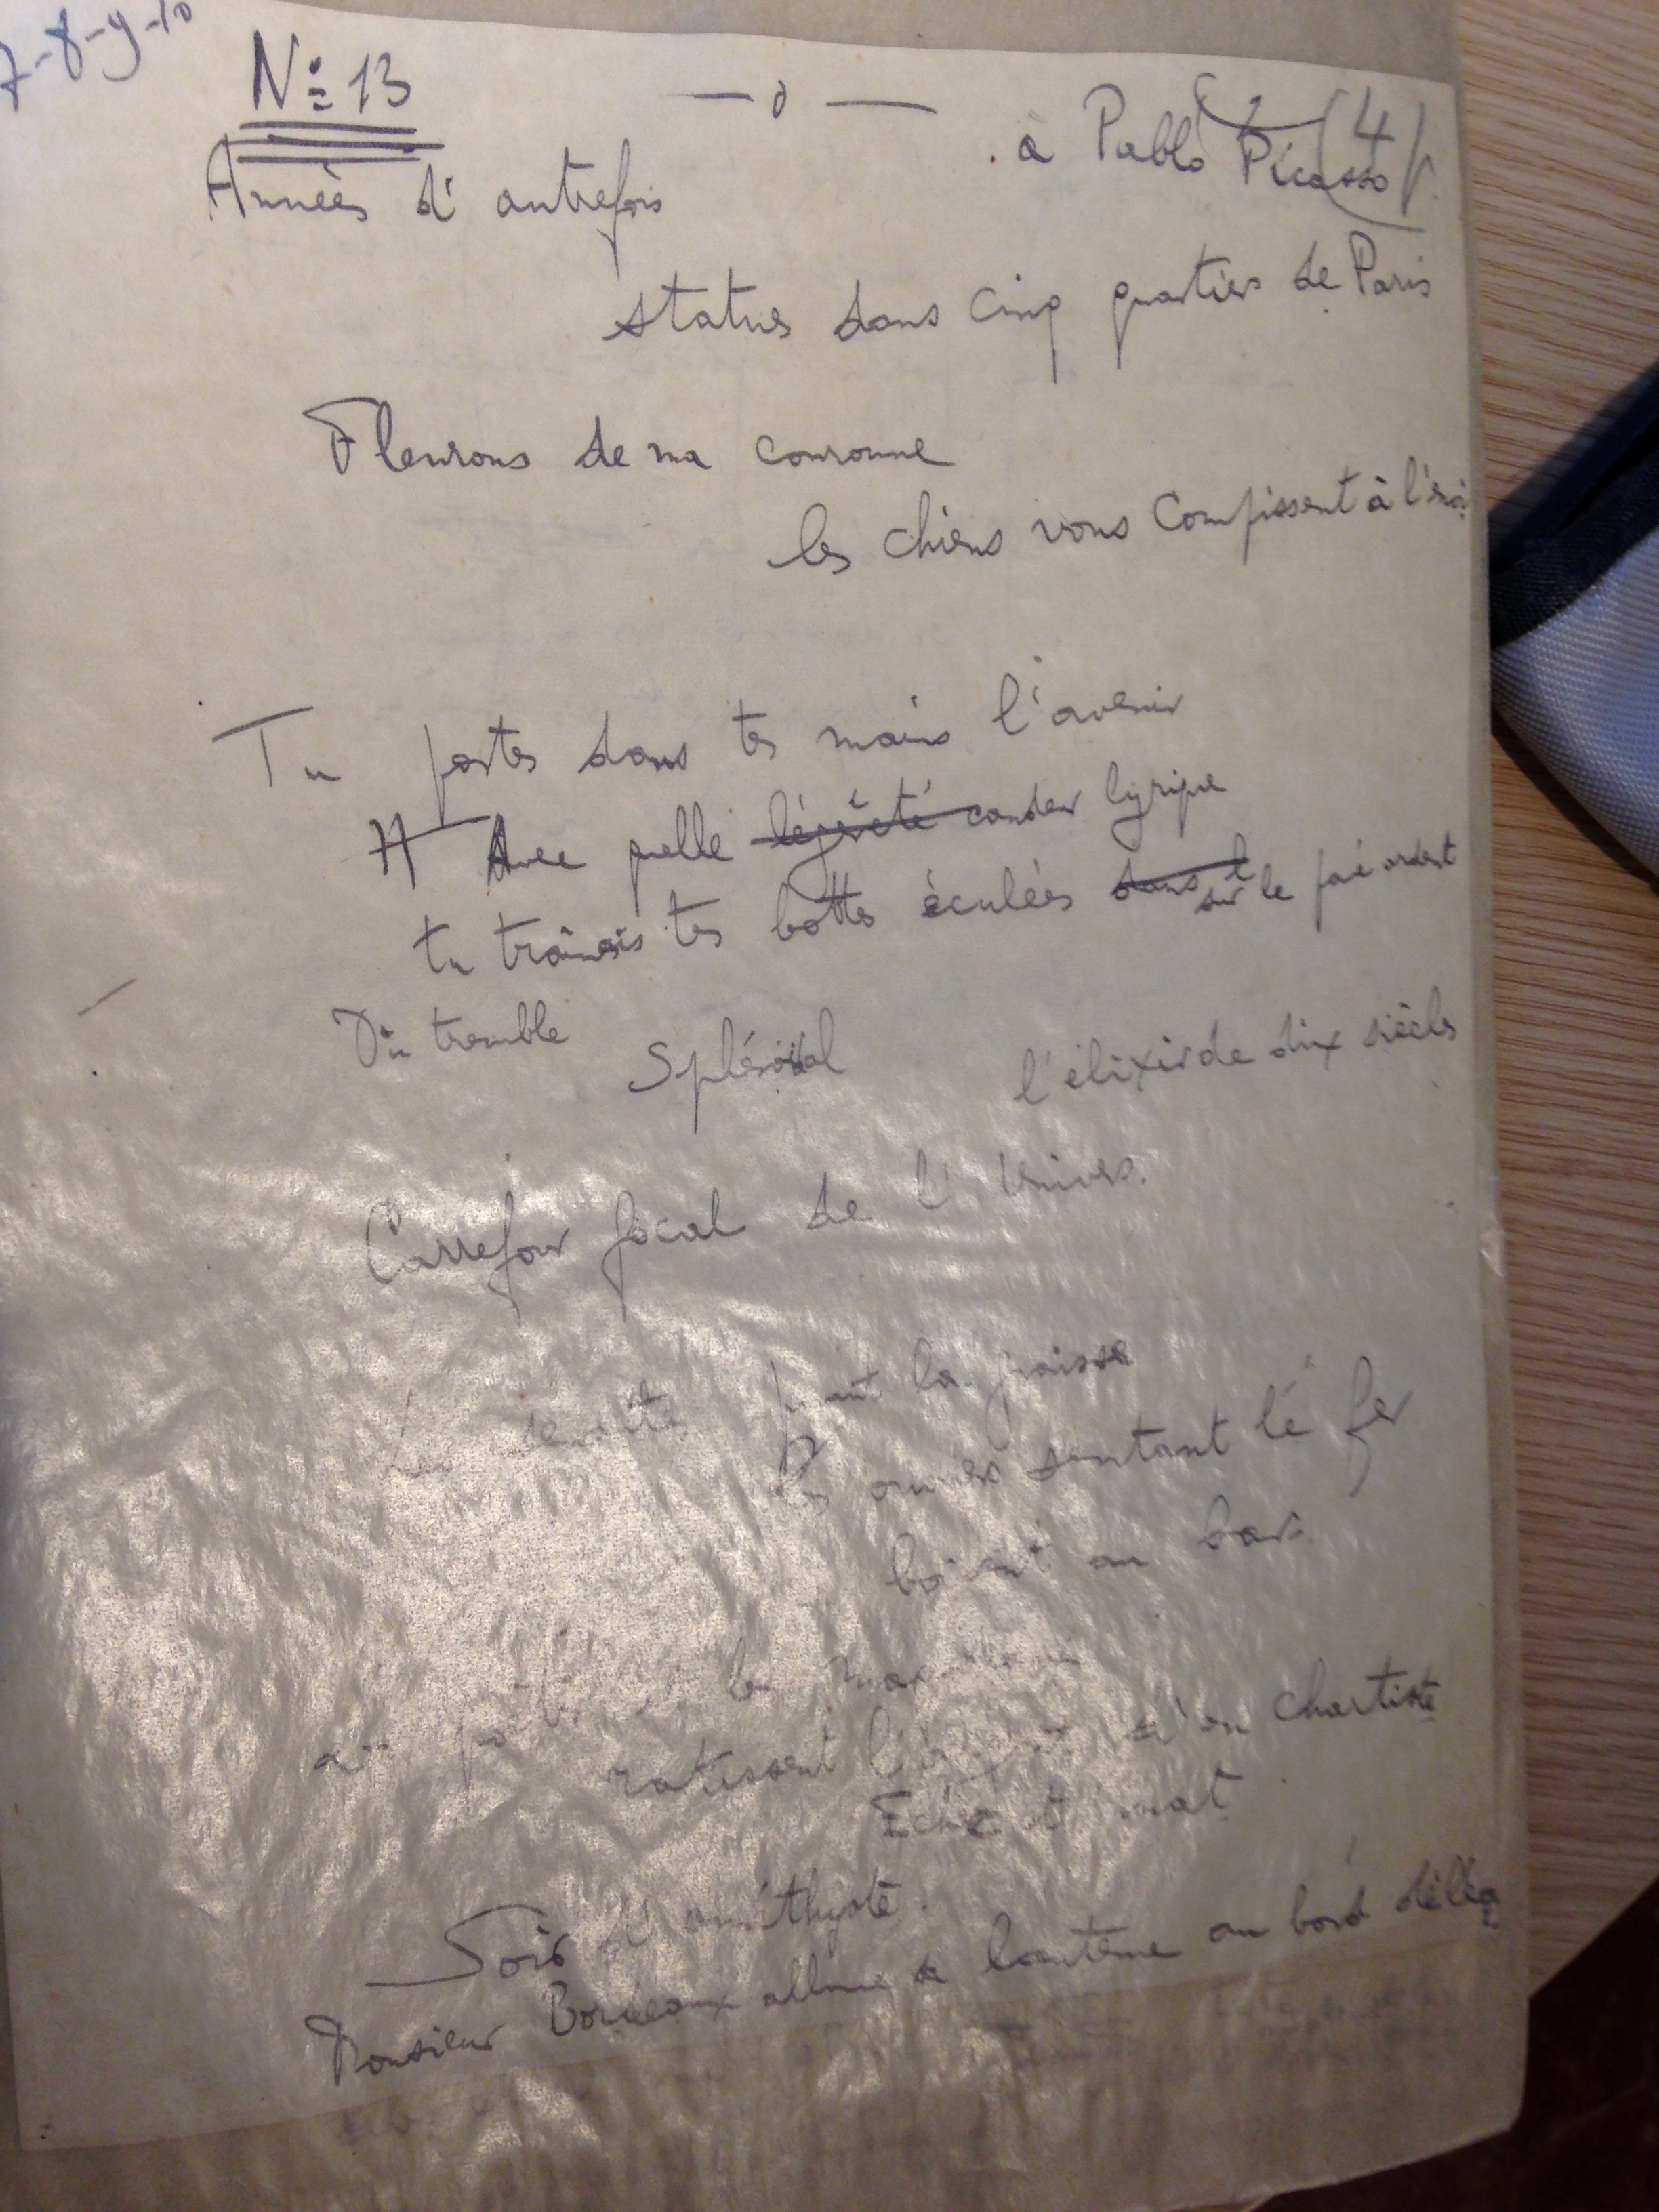 7-8-9-10
N° 13
— o —
(4)
à Pablo Picasso
Années d'autrefois
statues dans cinq quartiers de Paris
Fleurons de ma couronne
les chiens vous compissent à l'envi
Tu portes dans tes mains l'avenir
Avec quelle légèreté candeur lyrique
tu traînais tes bottes éculées dans l sur le pavé ardent
Où tremble
l'élixir de dix siècles
Carrefour focal de l'Univers.
la graisse
sentant le fer
boivent au bar.
ratissent d'un chartiste
Echec et mat
Soir d'améthyste.
Monsieur Bordeaux allume sa lanterne au bord